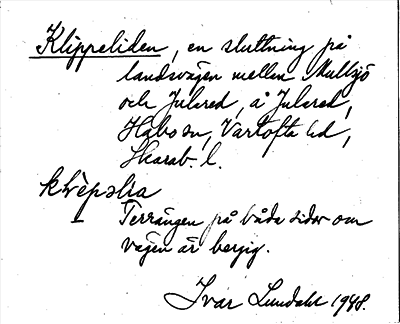 Klippeliden, en sluttning på
landsvägen mellan Mullsjö
och Julared, å Julared,
Habo sn, Vartofta hd,
Skarab. l.
klèpəlia
Terrängen på båda sidor om
vägen är bergig.
Ivar Lundahl 1948.